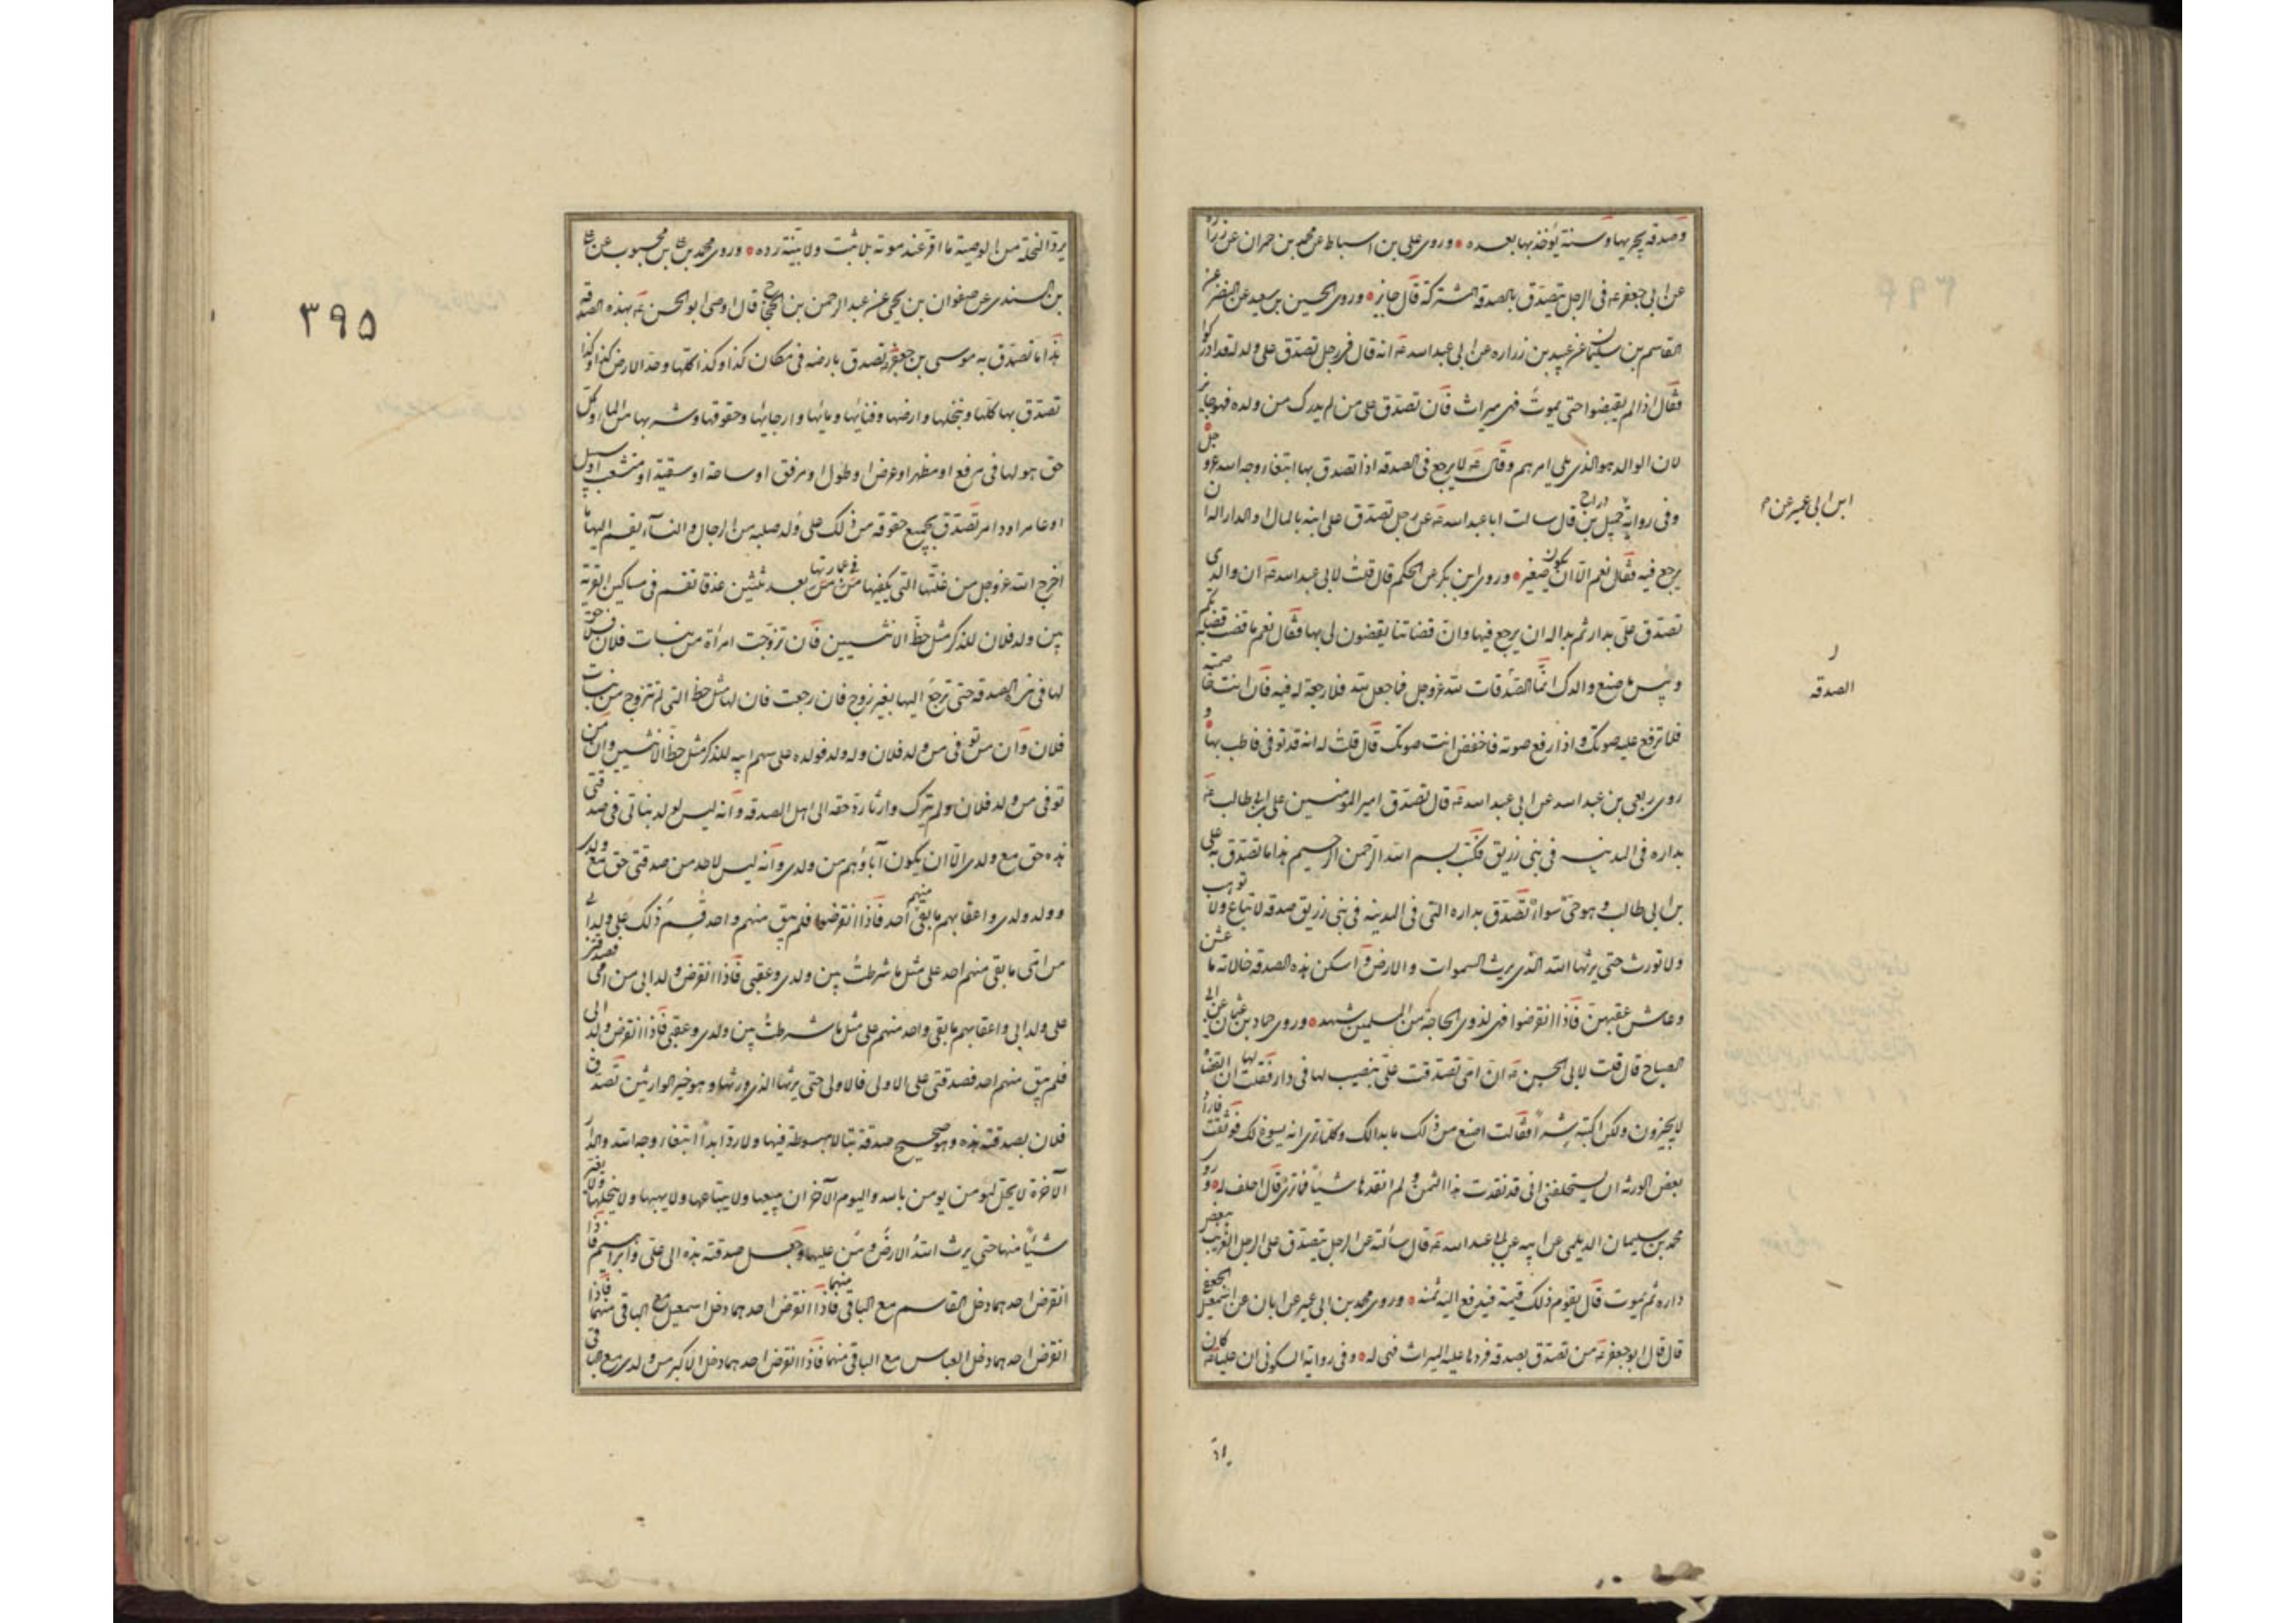 وصدقة يجريها وسنة يؤخذ بها بعده وروى على بن اسباط عن محمد بن حمران عن زرارة
عن ابى جعفر ع فى الرجل يتصدق بالصدقة المشتركة قال جايز وروى الحسين بن سعيد عن النضر عن
القاسم بن سليمان عن عبيد بن زرارة عن ابى عبد الله ع انه قال فى رجل تصدق على ولد له قد ادركوا
فقال اذا لم يقبضوا حتى يموت فهى ميراث فان تصدق على من لم يدرك من ولده فهو جايز
لان الوالد هو الذى يلى امرهم وقال ع لا يرجع فى الصدقة اذا تصدق بها ابتغاء وجه الله عز و جل
وفى رواية جميل بن دراج قال سالت ابا عبد الله ع عن رجل تصدق على ابنه بالمال او الدار اله ان
يرجع فيه فقال نعم الا ان يكون صغير وروى ابن بكير عن الحكم قال قلت لابى عبد الله ع ان والدى
تصدق على بدار ثم بدا له ان يرجع فيها وان قضاتنا يقضون لى بها فقال نعم ما قضت قضاتكم
وبئس ما صنع والدك انما الصدقات لله عز وجل فما جعل لله فلا رجعة له فيه فان انت خاصمته
فلا ترفع عليه صوتك واذا رفع صوته فاخفض انت صوتك قال قلت له انه قد توفى فاطب بها و
روى ربعى بن عبد الله عن ابى عبد الله ع قال تصدق امير المومنين على بن ابى طالب ع
بداره فى المدينه فى بنى زريق فكتب بسم الله الرحمن الرحيم هذا ما تصدق به على
بن ابى طالب وهو حى سوى تصدق بداره التى فى المدينه فى بنى زريق صدقه لا تباع ولا توهب
ولا تورث حتى يرثها الله الذى يرث السموات والارض واسكن هذه الصدقه خالاته ما عشن
وعاش عقبهن فاذا انقرضوا فهى لذوى الحاجة من المسلمين شهد وروى حماد بن عثمان عن ابى
الصباح قال قلت لابى الحسن ع ان امى تصدقت على بنصيب لها فى دار فقلت لها ان القضاة
لا يجيزون ولكن اكتبه شرا فقالت اصنع من ذلك ما بدا لك وكلما ترى انه يسوغ لك فوثقت فاراد
بعض الورثه ان يستحلفنى انى قد نقدت هذا الثمن ولم انقدها شيئا فما ترى قال احلف له وروى
محمد بن سليمان الديلمى عن ابيه عن ابى عبد الله ع قال سألته عن الرجل يتصدق على الرجل الغريب ببعض
داره ثم يموت قال يقوم ذلك قيمة فيدفع اليه ثمنه وروى محمد بن ابى عمير عن ابان عن اسمعيل الجعفى
قال قال ابو جعفر ع من تصدق بصدقه فردها عليه الميراث فهى له وفى رواية السكونى ان عليا ع كان
ابن ابى عمير عن
الصدقه
٣٩٥
يرد النحلة من الوصية ما اقر عند موته بلا ثبت ولا بينة رده وروى محمد بن على بن محبوب عن على
بن السندى عن صفوان بن يحيى عن عبد الرحمن بن الحجاج قال اوصى ابو الحسن ع بهذه الصدقه
هذا ما تصدق به موسى بن جعفر تصدق بارضه فى مكان كذا وكذا كلها وحد الارض كذا وكذا
تصدق بها كلها ونخلها وارضها وفنائها ومائها وارجائها وحقوقها وشربها من الماء وكل
حق هو لها فى مرفع او مظهر او عرض او طول او مرفق او ساحة او سقية او متشعب او مسيل
او عامر او دامر تصدق بجميع حقوقه من ذلك على ولد صلبه من الرجال والنساء يقسم اليها ما
اخرج الله عز وجل من غلتها التى يكفيها فى عمارتها ومن بعد ثلثين عذقا تقسم فى مساكين القرية
بين ولد فلان للذكر مثل حظ الانثيين فان تزوجت امرأة من بنات فلان فلا حق
لها فى هذه الصدقه حتى ترجع اليها بغير زوج فان رجعت فان لها مثل حظ التى لم تتزوج من بنات
فلان وان من توفى من ولد فلان وله ولد فولده على سهم ابيه للذكر مثل حظ الانثيين وان من
توفى من ولد فلان ولم يترك وارثا رد حقه الى اهل الصدقه وانه ليس لولد بناتى فى صدقتى
هذه حق مع ولدى الا ان يكون آباؤهم من ولدى وانه ليس لاحد من صدقتى حق مع ولدى
وولد ولدى واعقابهم ما بقى منهم احد فاذا انقرضوا فلم يبق منهم واحد قسم ذلك على ولد ابى
من امى ما بقى منهم احد على مثل ما شرطت بين ولدى وعقبى فاذا انقرض ولد ابى من امى فصدقتى
على ولد ابى واعقابهم ما بقى واحد منهم على مثل ما شرطت بين ولدى وعقبى فاذا انقرض ولد ابى
فلم يبق منهم احد فصدقتى على الاولى فالاولى حتى يرثها الذى ورثها وهو خير الوارثين تصدق
فلان بصدقته هذه وهو صحيح صدقة بتا لا مبسوطة فيها ولا ردا ابدا ابتغاء وجه الله والدار
الآخرة لا يحل لمومن يومن بالله واليوم الآخر ان يبيعها ولا يبتاعها ولا يهبها ولا ينحلها ولا يغير
شيئا منها حتى يرث الله الارض ومن عليها وجعل صدقته هذه الى على وابراهيم فاذا
انقرض احدهما دخل القاسم مع الباقى منهما فاذا انقرض احدهما دخل اسمعيل مع الباقى منهما فاذا
انقرض احدهما دخل العباس مع الباقى منهما فاذا انقرض احدهما دخل الاكبر من ولدى مع الباقى